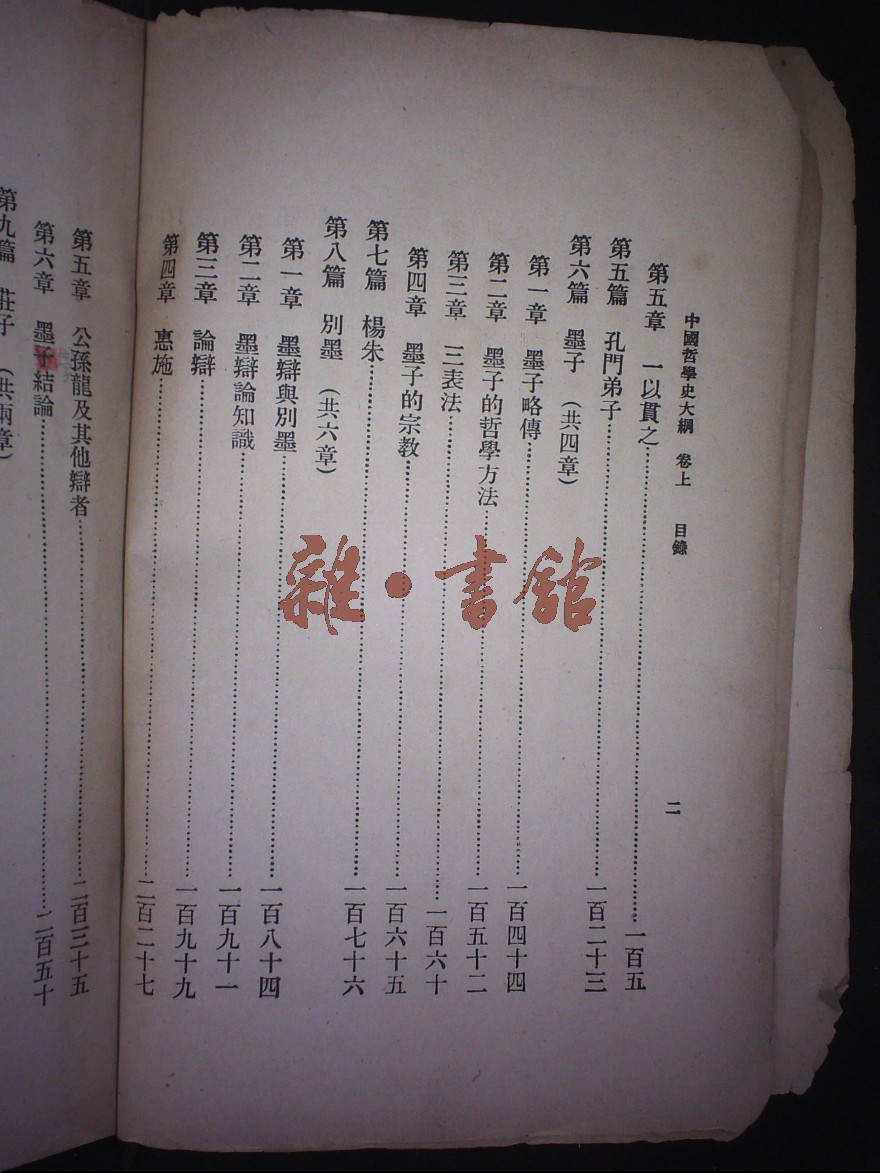 中國哲學史大綱 卷上 目錄 二
第五章 一以貫之…………一百五
第五篇 孔門弟子…………一百二十三
第六篇 墨子 (共四章)
第一章 墨子略傳…………一百四十四
第二章 墨子的哲學方法…………一百五十二
第三章 三表法…………一百六十
第四章 墨子的宗教…………一百六十五
第七篇 楊朱…………一百七十六
第八篇 別墨 (共六章)
第一章 墨辯與別墨…………一百八十四
第二章 墨辯論知識…………一百九十一
第三章 論辯…………一百九十九
第四章 惠施…………二百二十七
第五章 公孫龍及其他辯者…………二百三十五
第六章 墨子結論…………二百五十
第九篇 莊子 (共兩章)
雜·書館